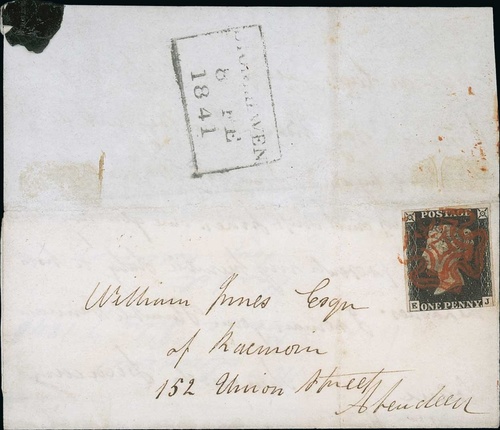 8 FE
1841
POSTAGE
ONE PENNY
E J
William Innes Esqr
of Raemoir
152 Union Street
Aberdeen